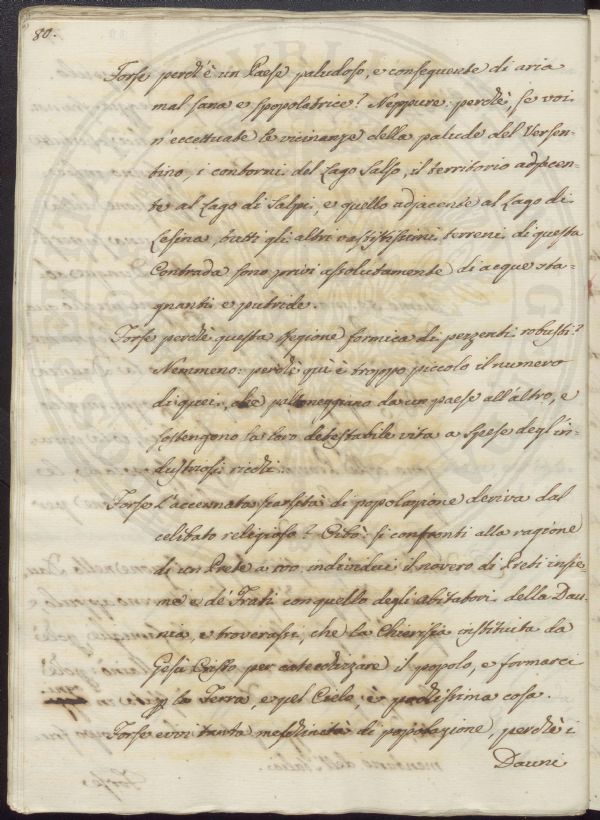 80.
Forse perchè è un Paese paludoso, e conseguente di aria
mal sana e spopolatrice? Neppure, perchè, se voi
n'eccettuate le vicinanze della palude del Versen-
tino, i contorni del Lago Salso, il territorio adjacen-
te al Lago di Salpi, e quello adjacente al Lago di
Lesina, tutti gli altri vastissimi terreni di questa
Contrada sono privi assolutamente di acque sta-
gnanti e putride.
Forse perchè questa Regione formica di pezzenti robusti?
Nemmeno: perchè quì è troppo piccolo il numero
di quei, che paltoneggiano da un paese all'altro, e
sostengono la loro detestabile vita a spese degl'in-
dustriosi ricchi.
Forse l'accennata scarsità di popolazione deriva dal
celibato religioso? Oibò: si confronti alla ragione
di un Prete a 100 individui il novero di Preti insie-
me e de' Frati con quello degli abitatori della Dau-
nia, e troverassi, che la Chieresia instituita da
Gesù Cristo per catechizzare il popolo, e formarci
p la Terra, e pel Cielo, è pochissima cosa.
Forse evvi tanta meschinità di popolazione, perchè i
Dauni